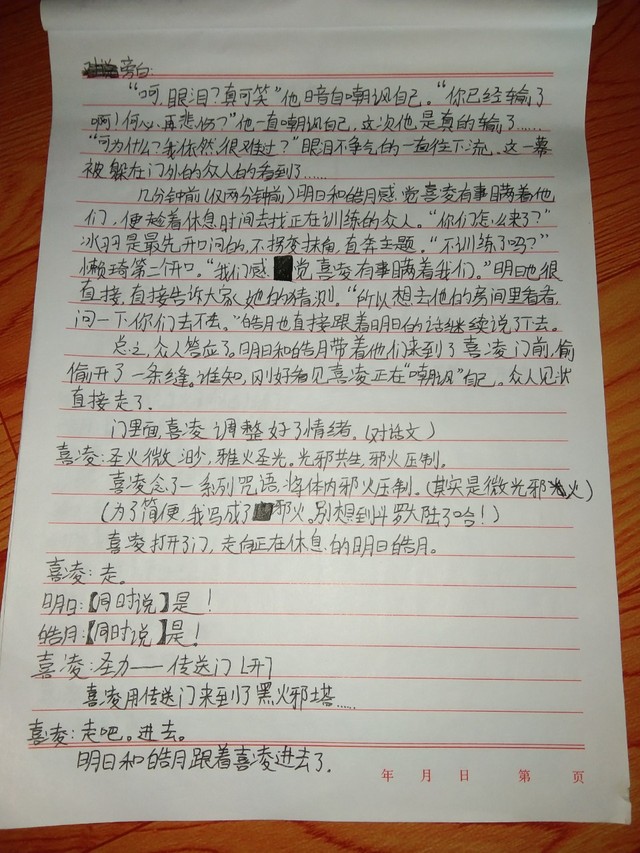 旁白:
"呵,眼泪?真可笑"他暗自嘲讽自己。"你已经输了
啊!何必再悲伤?"他一直嘲讽自己,这次他是真的输了……
"可为什么?我依然很难过?"眼泪不争气的一直往下流。这一幕
被躲在门外的众人偷偷看到了……
几分钟前(仅两分钟前)明日和皓月感觉喜凌有事瞒着他
们,便趁着休息时间去找正在训练的众人。"你们怎么来了?"
冰羽是最先开口问的,不拐弯抹角,直奔主题。"不训练了吗?"
懒琦第二个开口。"我们感觉,喜凌有事瞒着我们。"明日也很
直接,直接告诉大家她的猜测。"所以想去他的房间里看看,
问一下你们去不去。"皓月也直接跟着明日的话继续说了下去。
总之,众人答应了。明日和皓月带着他们来到了喜凌门前,偷
偷开了一条缝。谁知,刚好看见喜凌正在"嘲讽"自己。众人见状
直接走了.
门里面,喜凌调整好了情绪。(对话文)
喜凌:圣火微渺,雅火圣光。光邪共生,邪火压制。
喜凌念了一系列咒语,将体内邪火压制。(其实是微光邪火)
(为了简便,我写成了邪火。别想到斗罗大陆了哈!)
喜凌打开了门,走向正在休息的明日皓月。
喜凌:走。
明日:【同时说】是!
皓月:【同时说】是!
喜凌:圣力——传送门[开]
喜凌用传送门来到了黑火邪塔……
喜凌:走吧。进去。
明日和皓月跟着喜凌进去了.
年 月 日 第 页